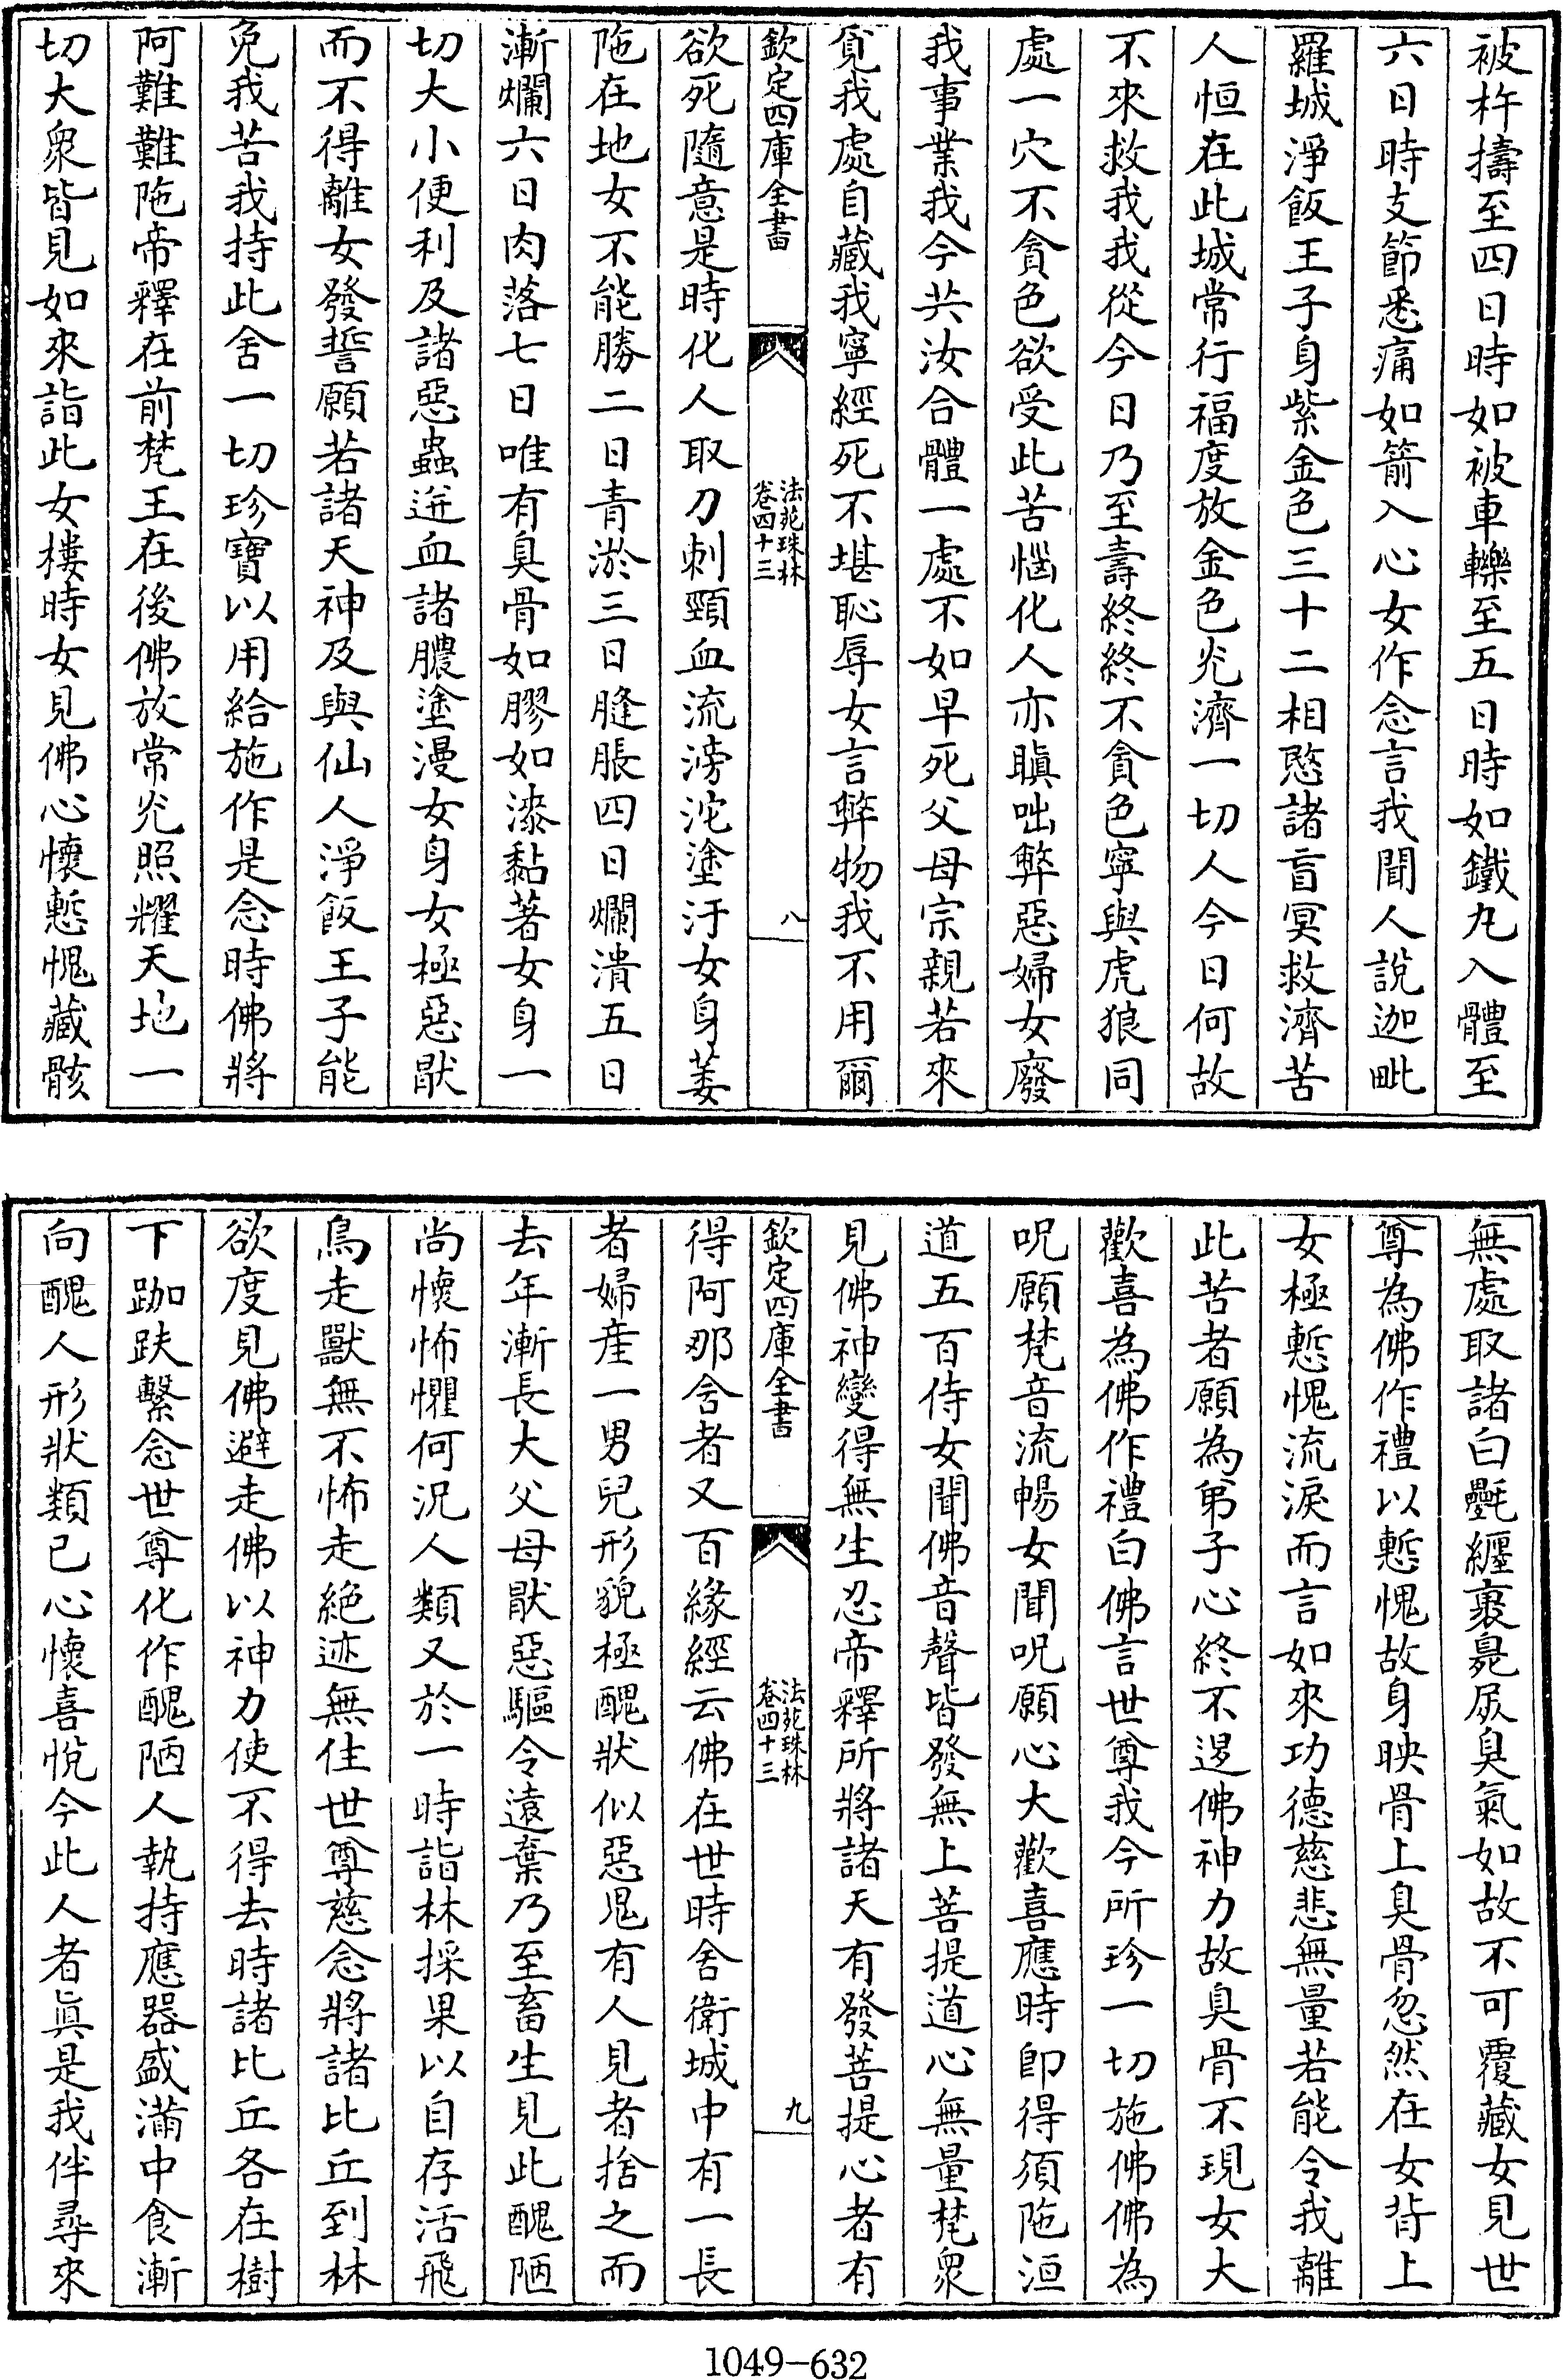 被杵擣至四日時如被車轢至五日時如鐵丸入體至
六日時支節悉痛如箭入心女作念言我聞人說迦毗
羅城淨飯王子身紫金色三十二相愍諸盲冥救濟苦
人恒在此城常行福度放金色光濟一切人今日何故
不來救我我從今日乃至壽終終不貪色寧與虎狼同
處一穴不貪色欲受此苦惱化人亦瞋咄弊惡婦女廢
我事業我今共汝合體一處不如早死父母宗親若來
覓我處自藏我寧經死不堪恥辱女言弊物我不用爾
欽定四庫全書
法苑珠林
卷四十三
八
欲死隨意是時化人取刀刺頸血流滂沱塗汙女身萎
陁在地女不能勝二日青淤三日膖脹四日爛潰五日
漸爛六日肉落七日唯有臭骨如膠如漆黏著女身一
切大小便利及諸惡蟲迸血諸膿塗漫女身女極惡猒
而不得離女發誓願若諸天神及與仙人淨飯王子能
免我苦我持此舍一切珍寶以用給施作是念時佛將
阿難難陁帝釋在前梵王在後佛放常光照耀天地一
切大衆皆見如來詣此女樓時女見佛心懷慙愧藏骸
無處取諸白㲲纏裹臰屍臭氣如故不可覆藏女見世
尊為佛作禮以慙愧故身映骨上臭骨忽然在女背上
女極慙愧流淚而言如來功德慈悲無量若能令我離
此苦者願為弟子心終不退佛神力故臭骨不現女大
歡喜為佛作禮白佛言世尊我今所珍一切施佛佛為
呪願梵音流暢女聞呪願心大歡喜應時即得須陁洹
道五百侍女聞佛音聲皆發無上菩提道心無量梵衆
見佛神變得無生忍帝釋所將諸天有發菩提心者有
欽定四庫全書
法苑珠林
卷四十三
九
得阿那含者又百緣經云佛在世時舍衛城中有一長
者婦産一男兒形貌極醜狀似惡鬼有人見者捨之而
去年漸長大父母猒惡驅令遠棄乃至畜生見此醜陋
尚懷怖懼何況人類又於一時詣林採果以自存活飛
鳥走獸無不怖走絕迹無住世尊慈念將諸比丘到林
欲度見佛避走佛以神力使不得去時諸比丘各在樹
下跏趺繫念世尊化作醜陋人執持應器盛滿中食漸
向醜人形狀類已心懷喜悅今此人者眞是我伴尋來
1049-632